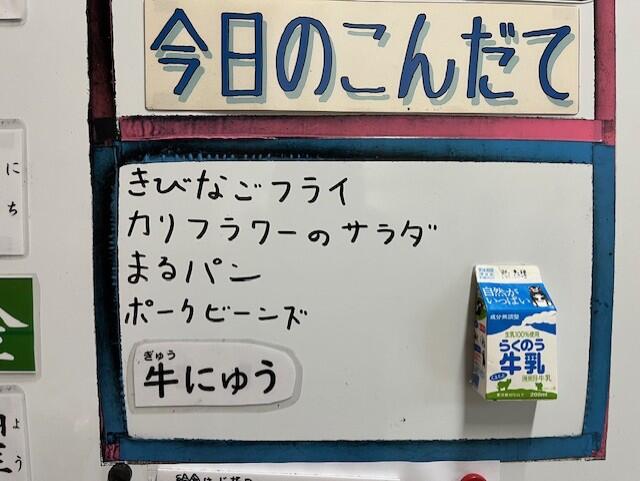 今日のこんだて
きびなごフライ
カリフラワーのサラダ
まるパン
ポークビーンズ
ぎゅう
牛にゅう
自然が
いっぱい
成分無調整
生乳100%使用
らくのう
牛乳
200ml
にち
よう